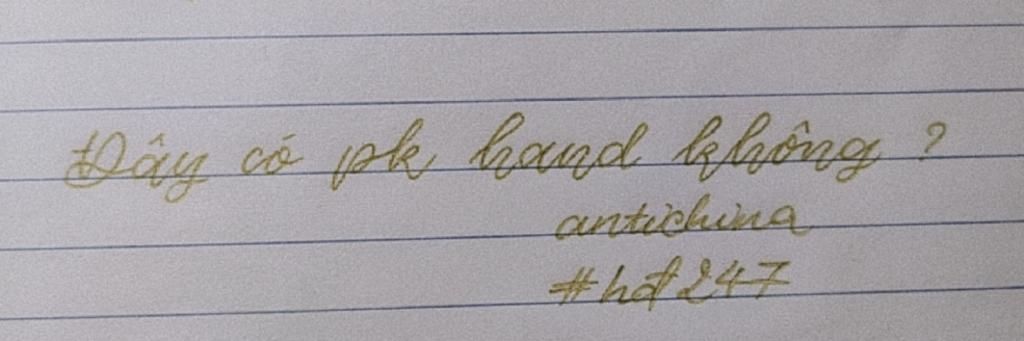 Đây có pk hand không ?
antichina
#hđ247